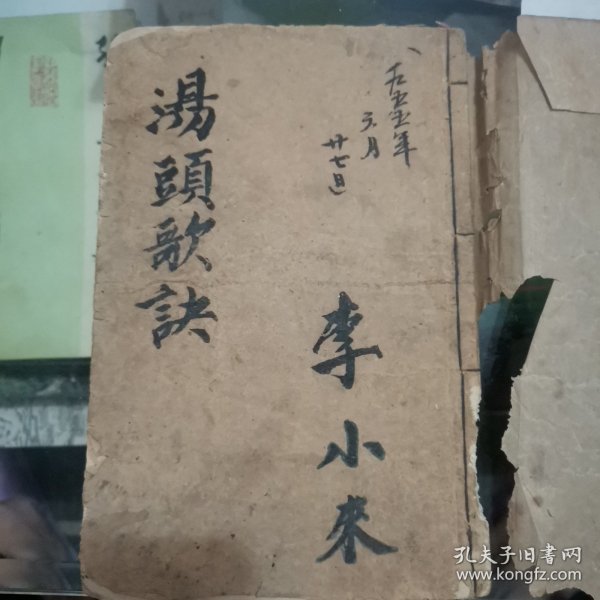 一九五五年
六月
廿七日
李小來
湯頭歌訣
孔夫子旧书网
www.kongfz.com